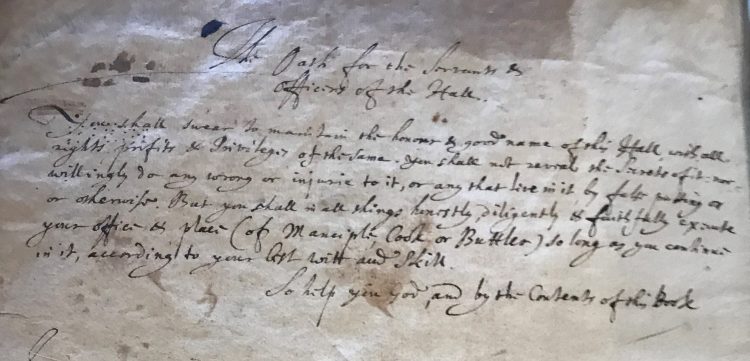 The Oath for the Servants &
Officers of the Hall.
You shall swear to maintain the honour & good name of this Hall, with all
rights profits & Priviledges of the same. you shall not reveal the Secrets of it nor
willingly do any wrong or injurie to it, or any that live in it by false
or otherwise. But you shall in all things honestly, diligently & faithfully execute
your office & place (of Manciple, Cook or Buttler) so long as you continue
in it, according to your best witt and Skill.
So help you God, and by the Contents of this Book